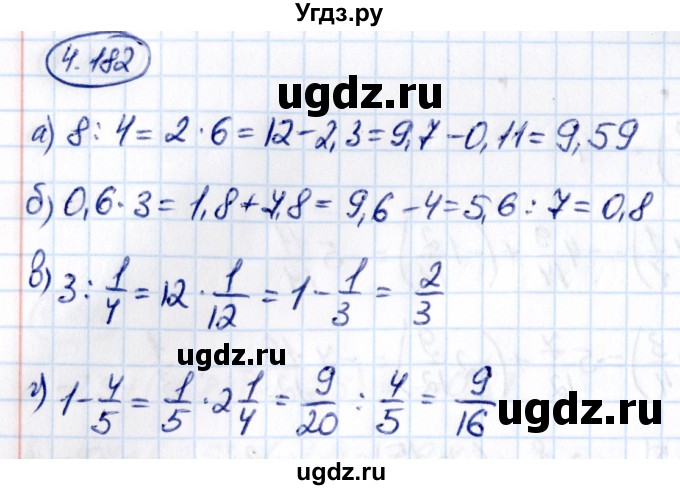 Угдз.ру
4.182
ugdz.ru
а) 8 : 4 = 2 · 6 = 12 - 2,3 = 9,7 - 0,11 = 9,59
б) 0,6 · 3 = 1,8 + 7,8 = 9,6 - 4 = 5,6 : 7 = 0,8
в) 3 : 1/4 = 12 · 1/12 = 1 - 1/3 = 2/3
ugdz.ru
ugdz.ru
г) 1 - 4/5 = 1/5 · 2 1/4 = 9/20 : 4/5 = 9/16
ugdz.ru
ugdz.ru